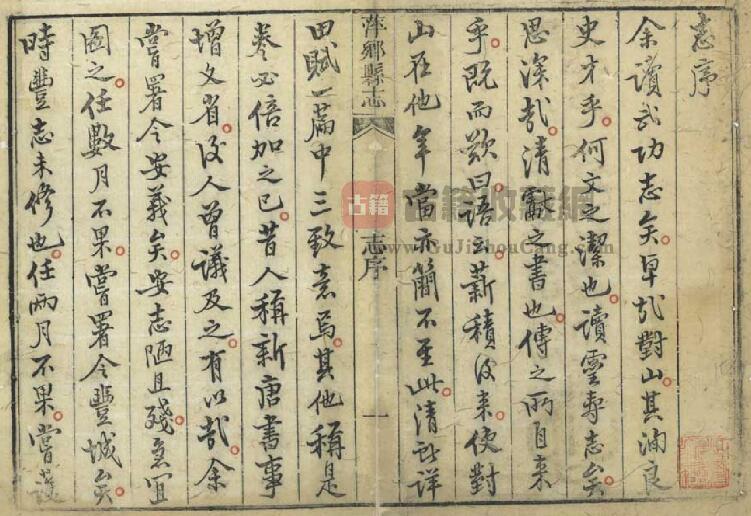 志序
余讀武功志矣卓哉對山其洵良
史才乎何文之潔也讀靈壽志矣
思深哉清獻之書也傳之所自來
乎既而歎曰語云薪積後來使對
山在他年當亦簡不至此清獻詳
萍鄉縣志
志序
一
田賦一篇中三致意焉其他稱是
卷必倍加之已昔人稱新唐書事
增文省後人曾議及之有以哉余
嘗署令安義矣安志陋且殘急宜
圖之任數月不果嘗署令豐城矣
時豐志未修也任兩月不果嘗護
古籍
古籍收藏網
www.GuJiShouCang.com